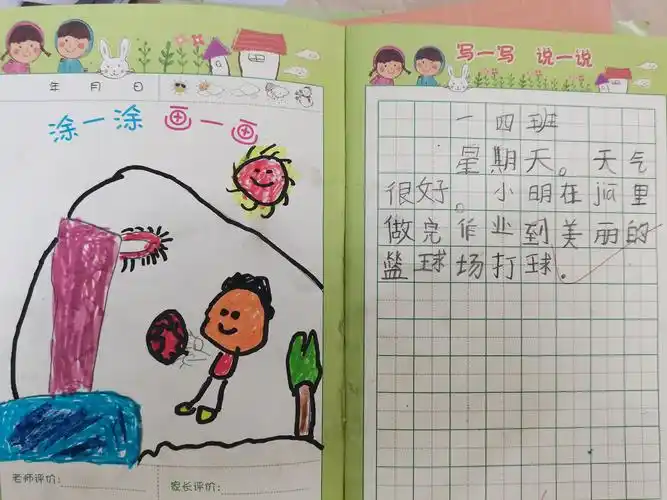 年 月 日
涂一涂 画一画
老师评价:
家长评价:
写一写 说一说
一四班
星期天。天气
很好。小明在jiā里
做完作业到美丽的
篮球场打球。